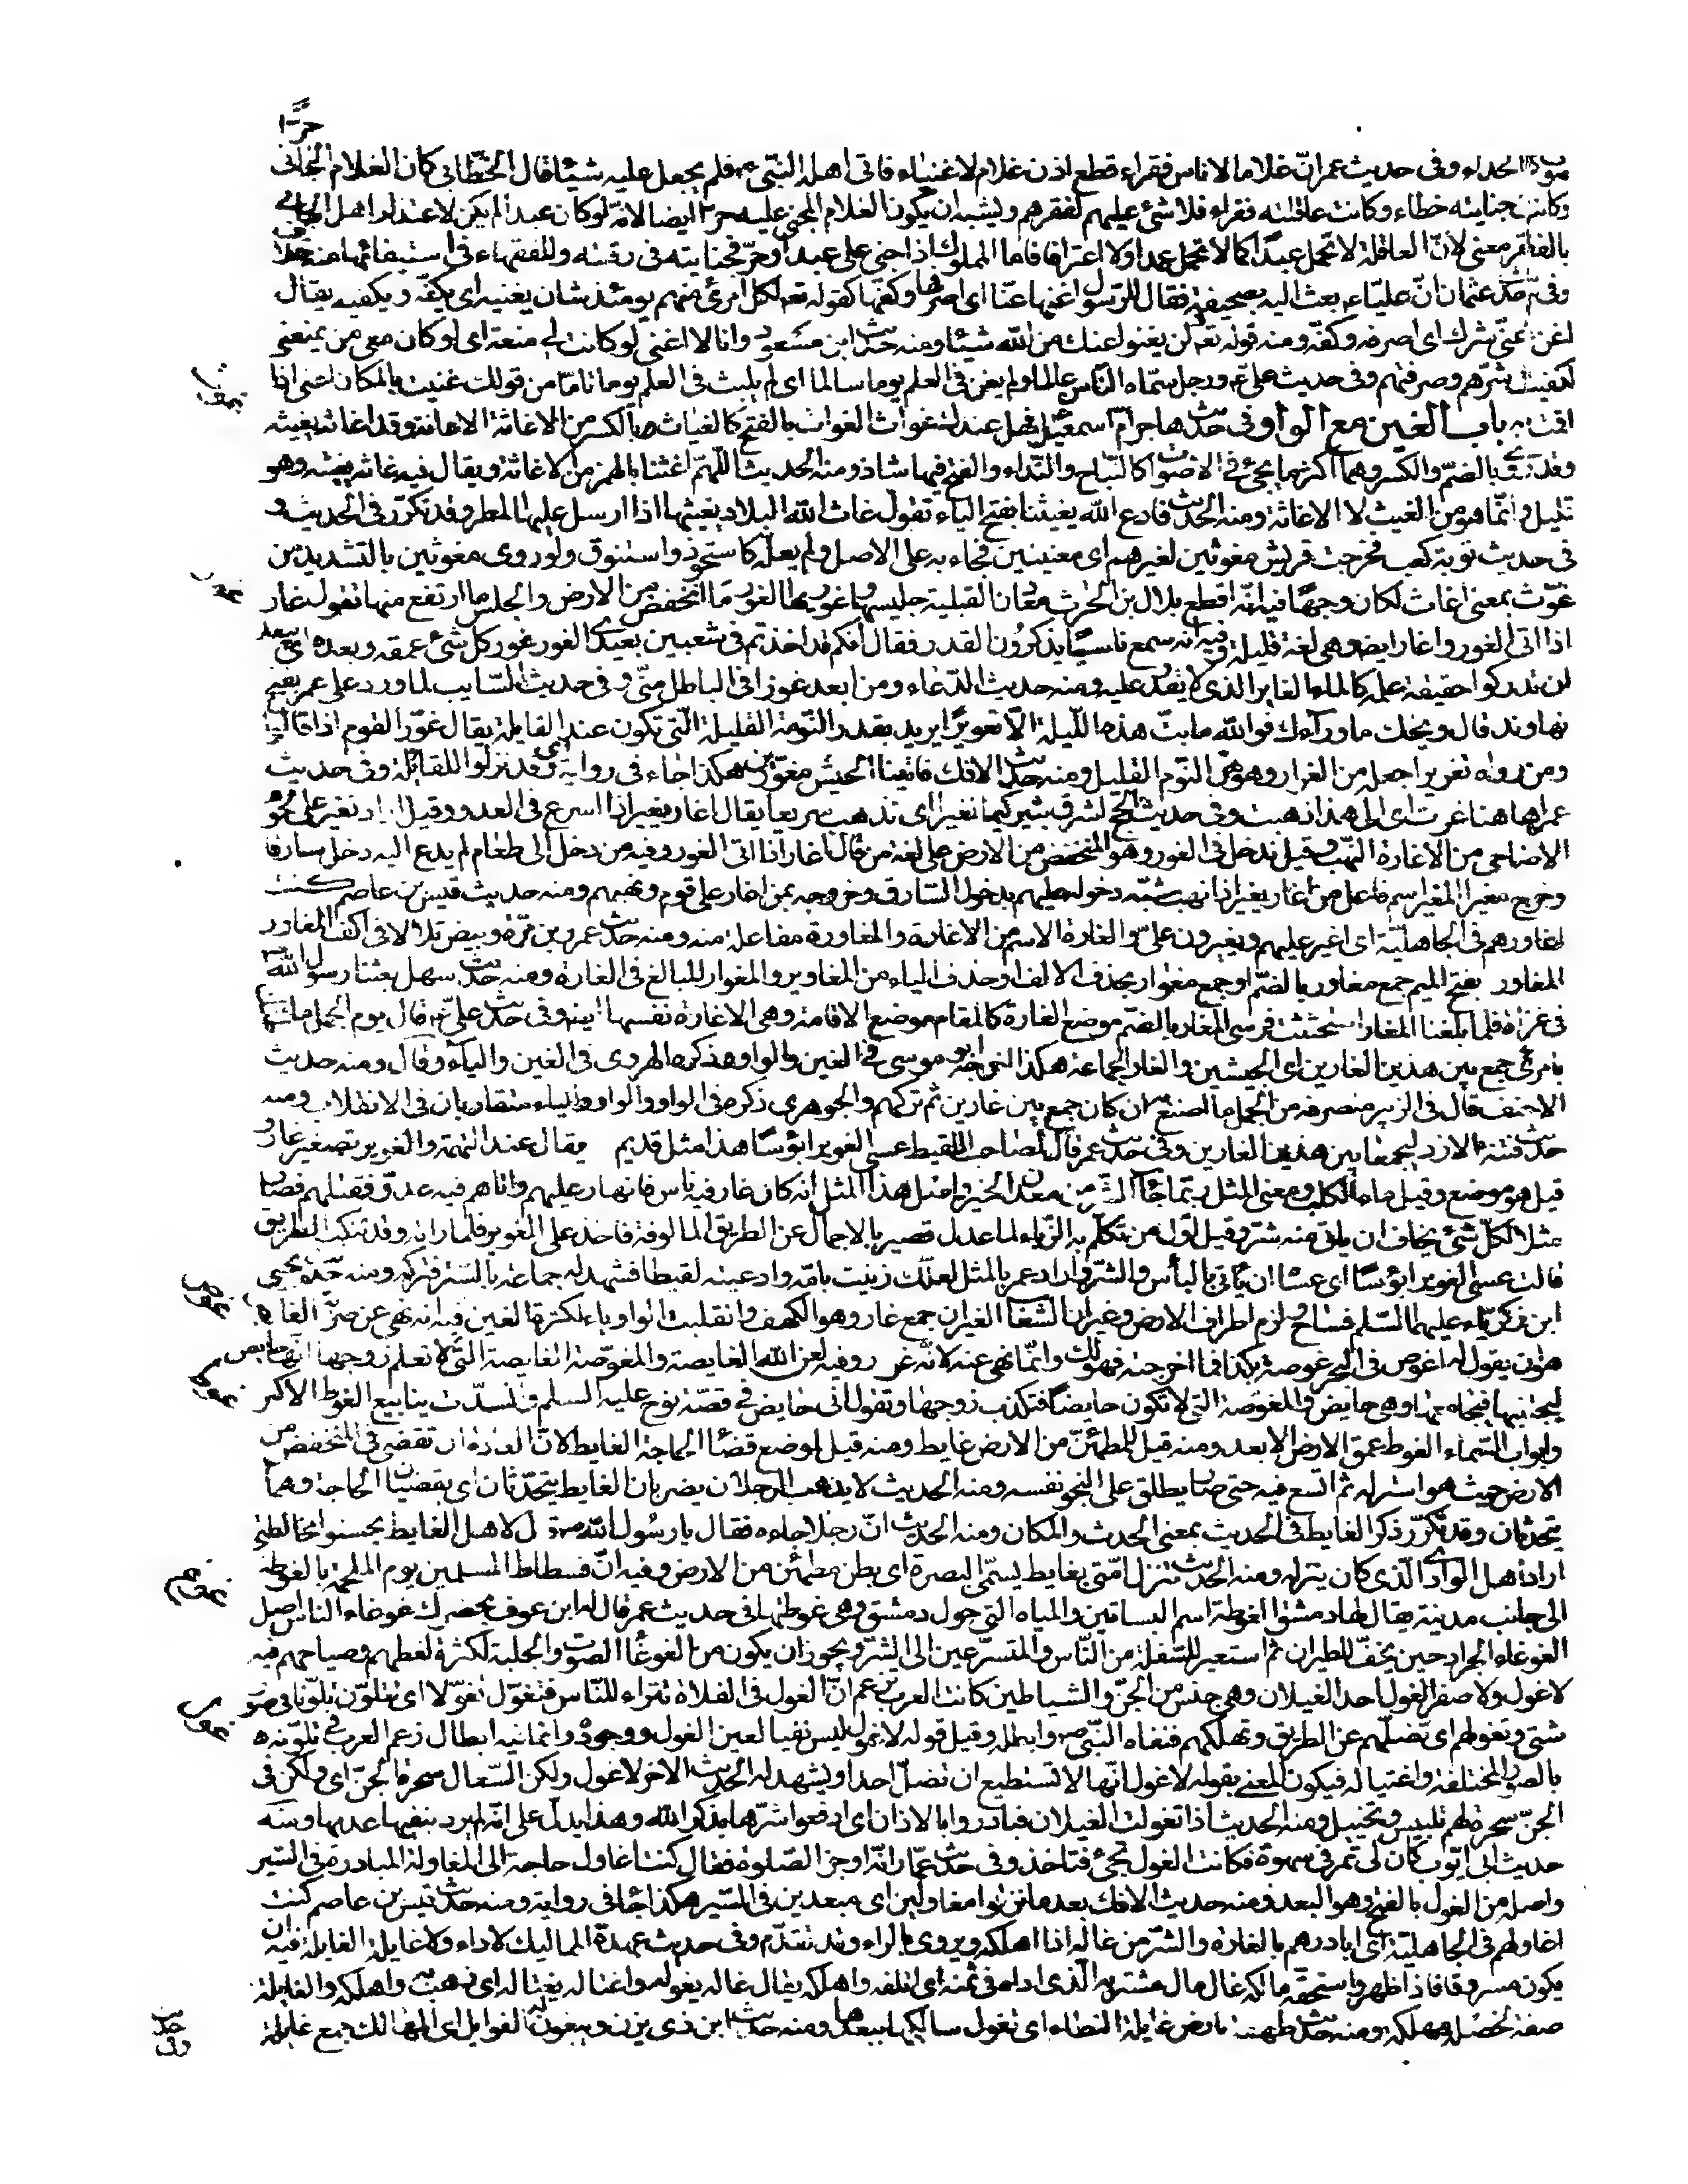 حرّا
صوت الحداء وفى حديث عمر انّ غلاما لاناس فقراء قطع اذن غلام لاغنياء فاتى اهله النبّى ص فلم يجعل عليه شيئا قال الخطّابى كان الغلام الجانى
وكانت جنايته خطاء وكانت عاقلته فقراء فلا شئ عليهم لفقرهم ويشبه ان يكون الغلام المجنى عليه حرا ايضا لانه لو كان عبدا لم يكن لاعتذار اهل الجانى
بالفقر معنى لانّ العاقلة لا تحمل عبدًا كما لا تحمل عمدا ولا اعترافا فاما المملوك اذا جنى على عبد او حرّ فجنايته فى رقبته وللفقهاء فى استيفائها منه خلاف
وفى حديث عثمان انّ عليّا ع بعث اليه بصحيفة فقال للرّسول اغنها عنّا اى اصرفها وكفّها كقوله تع لكل امرئ منهم يومئذ شان يغنيه اى يكفّه ويكفيه يقال
اغن عنّى شرك اى اصرفه وكفّه ومنه قوله تع لن يغنوا عنك من الله شيئا ومنه حديث ابن مسعود وانا لا اغنى لو كانت لى منعة اى لو كان معى من يمنعنى
لكفيت شرّهم وصرفتهم وفى حديث علىّ ع ورجل سمّاه النّاس عالما ولم يغن فى العلم يوما سالما اى لم يلبث فى العلم يوما تامّا من قولك غنيت بالمكان اغنى اذا
اقمت به باب الغين مع الواو فى حديث هاجر ام اسمعيل فهل عندك غواث الغواث بالفتح كالغياث بالكسر من الاغاثة الاعانة وقد اغاثه يغيثه
وقد روى بالضمّ والكسر وهما اكثر ما يجئ فى الاصوات كالنّباح والنّداء والفتح فيها شاذ ومنه الحديث اللّهمّ اغثنا بالهمز من الاغاثة ويقال فيه غاثه يغيثه وهو
قليل وانّما هو من الغيث لا الاغاثة ومنه الحديث فادع الله يغيثنا بفتح الياء تقول غاث الله البلاد يغيثها اذا ارسل عليها المطر وقد تكرّر فى الحديث و
فى حديث توبة كعب فخرجت قريش مغوثين لغيرهم اى مغيثين فجاء به على الاصل ولم يعلّه كاستحوذ واستنوق ولو روى مغوثين بالتشديد من
غوّث بمعنى اغاث لكان وجها فيه انّه اقطع بلال بن الحارث معادن القبلية جليسها وغوريها الغور ما انخفض من الارض والجلس ما ارتفع منها تقول غار
اذا اتى الغور واغار ايض وهى لغة قليلة وفيه انه سمع ناسا يذكرون القدر فقال انكم قد اخذتم فى شعبين بعيدى الغور غور كل شئ عمقه وبعده اى يبعد
ان تدركوا حقيقة علمه كالماء الغاير الذى لا يقدر عليه ومنه حديث الدّعاء ومن ابعد غورا فى الباطل منّى وفى حديث السّايب لما ورد على عمر بفتح
نهاوند قال ويحك ما وراءك فو الله ما بتّ هذه اللّيلة الّا تغويرًا يريد بقدر النّومة القليلة الّتى تكون عند القايلة يقال غوّر القوم اذا قالوا
ومن رواه تغريرا جعله من الغرار وهو النّوم القليل ومنه حديث الافك فاتينا الجيش مغوّرين هكذا جاء فى رواية اى وقد نزلوا للقائلة وفى حديث
عمر اهاهنا غرت اى الى هذا ذهبت وفى حديث الحج اشرق ثبير كيما نغير اى نذهب سريعا يقال اغار يغير اذا اسرع فى العدو وقيل اراد نغير على لحوم
الاضاحى من الاغارة النّهب وقيل ندخل فى الغور وهو المنخفض من الارض على لغة من قال اغار اذا اتى الغور وفيه من دخل الى طعام لم يدع اليه دخل سارقا
وخرج مغيرا المغير اسم فاعل من اغار يغير اذا نهب شبّه دخوله عليهم بدخول السّارق وخروجه بمن اغار على قوم ونهبهم ومنه حديث قيس بن عاصم كنت
اغاورهم فى الجاهليّة اى اغير عليهم ويغيرون علىّ والغارة الاسم من الاغارة والمغاورة مفاعلة منه ومنه حديث عمرو بن مرّة وبيض تلالا فى اكف المغاور
المغاور بفتح الميم جمع مغاور بالضمّ او جمع مغوار بحذف الالف او حذف الياء من المغاوير والمغوار المبالغ فى الغارة ومنه حديث سهل بعثنا رسول الله ص
فى غزاة فلما بلغنا المغار استحثثت فرسى المغار بالضّم موضع الغارة كالمقام موضع الاقامة وهى الاغارة نفسها ايض وفى حديث علىّ ع قال يوم الجمل ما ظنك
بامرئ جمع بين هذين الغارين اى الجيشين والغار الجماعة هكذا اخرجه ابو موسى فى الغين والواو وذكره الهروى فى الغين والياء وقال ومنه حديث
الاحنف قال فى الزبير منصرفه من الجمل ما اصنع به ان كان جمع بين غارين ثم تركهم والجوهرى ذكره فى الواو والواو والياء متقاربان فى الانقلاب ومنه
حديث فتنة الازد ليجمعا بين هذين الغارين وفى حديث عمر قال لصاحب اللقيط عسى الغوير ابؤسًا هذا مثل قديم يقال عند التهمة والغوير تصغير غار و
قيل هو موضع وقيل ماء لكلب ومعنى المثل ربّما جاء الشرّ من معدن الخير واصل هذا المثل انه كان غار فيه ناس فانهار عليهم واتاهم فيه عدوّ فقتلهم فصار
مثلا لكلّ شئ يخاف ان ياتى منه شرّ وقيل اوّل من تكلّم به الزّباء لما عدل قصير بالاجمال عن الطريق المالوفة فاخذ على الغوير فلما راته وقد تنكب الطريق
قالت عسى الغوير ابؤسًا اى عساه ان ياتى بالبأس والشّر واراد عمر بالمثل لعلّك زنيت بامّه وادعيته لقيطا فشهد له جماعة بالستر فتركه ومنه حديث يحيى
ابن زكريّاء عليهما السّلم فساح ولزم اطراف الارض وغيران الشعاب الغيران جمع غار وهو الكهف وانقلبت الواو ياء لكسرة الغين فيه انه نهى عن ضربة الغايص
هو ان يقول له اغوص فى البحر غوصة بكذا فما اخرجته فهو لك وانّما نهى عنه لانّه غرر وفيه لعن الله الغايصة والمغوّصة الغايصة التى لا تعلم زوجها انها حايض
ليجتنبها فيجامعها وهى حايض والمغوّصة التى لا تكون حايضًا فتكذب زوجها وتقول انى حايض فى قصّة نوح عليه السلم وانسدّت ينابيع الغوط الاكبر
وابواب السّماء الغوط عمق الارض الابعد ومنه قيل للمطمئنّ من الارض غايط ومنه قيل لموضع قضاء الحاجة الغايط لانّ العادة ان تقضى فى المنخفض من
الارض حيث هو استر له ثم اتّسع فيه حتى صار يطلق على النجو نفسه ومنه الحديث لا يذهب الرجلان يضربان الغايط يتحدّثان اى يقضيان الحاجة وهما
يتحدّثان وقد تكرّر ذكر الغايط فى الحديث بمعنى الحدث والمكان ومنه الحديث انّ رجلا جاءه فقال يا رسول الله ص قل لاهل الغايط يحسنوا مخالطتى
اراد اهل الوادى الّذى كان ينزله ومنه الحديث تنزل امّتى بغايط يسمّى البصرة اى بطن مطمئنّ من الارض وفيه انّ فسطاط المسلمين يوم الملحمة بالغوطة
الى جانب مدينة يقال لها دمشق الغوطة اسم البساتين والمياه التى حول دمشق وهى غوطتها فى حديث عمر قال له ابن عوف يحضرك غوغاء الناس اصل
الغوغاء الجراد حين يخفّ للطيران ثم استعير للسّفلة من النّاس والمتسرّعين الى الشرّ ويجوز ان يكون من الغوغاء الصّوت والجلبة لكثرة لغطهم وصياحهم فيه
لا غول ولا صفر الغول احد الغيلان وهى جنس من الجنّ والشياطين كانت العرب تزعم انّ الغول فى الفلاة تتراءى للنّاس فتغوّل تغوّلا اى تتلوّن تلوّنا فى صور
شتى وتغولهم اى تضلّهم عن الطريق وتهلكهم فنفاه النبّى ص وابطله وقيل قوله لا غول ليس نفيا لعين الغول ووجوده وانما فيه ابطال زعم العرب فى تلوّنه
بالصور المختلفة واغتياله فيكون المعنى بقوله لا غول انّها لا تستطيع ان تضلّ احدا ويشهد له الحديث الاخر لا غول ولكن السّعالى سحرة الجنّ اى ولكن فى
الجنّ سحرة لهم تلبيس وتخييل ومنه الحديث اذا تغولت الغيلان فبادروا بالاذان اى ادفعوا شرّها بذكر الله وهذا يدلّ على انّه لم يرد بنفيها عدمها ومنه
حديث ابى ايّوب كان لى تمر فى سهوة فكانت الغول تجئ فتاخذ وفى حديث عمّار انّه اوجز الصّلوة فقال كنت اغاول حاجة الى المغاولة المبادرة فى السّير
واصله من الغول بالفتح وهو البعد ومنه حديث الافك بعد ما نزلوا مغاولين اى مبعدين فى السّير هكذا جاء فى رواية ومنه حديث قيس بن عاصم كنت
اغاولهم فى الجاهليّة اى ابادرهم بالغارة والشّر من غاله اذا اهلكه ويروى بالراء وقد تقدّم وفى حديث عهدة المماليك لا داء ولا غايلة الغايلة فيه ان
يكون مسروقا فاذا ظهر واستحقّه مالكه غال مال مشتريه الّذى ادّاه فى ثمنه اى اتلفه واهلكه يقال غاله يغوله واغتاله يغتاله اى ذهب به واهلكه والغايلة
صفة لخصلة مهلكة ومنه حديث طهفة بارض غايلة النطاء اى تغول سالكيها ببعدها ومنه حديث ابن ذى يزن ويبغون له الغوايل اى المهالك جمع غايلة